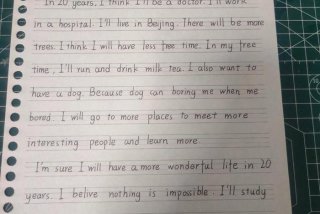 In 20 years, I think I'll be a doctor. I'll work
in a hospital. I'll live in Beijing. There will be more
trees. I think I will have less free time. In my free
time, I'll run and drink milk tea. I also want to
have a dog. Because dog can boring me when me
bored. I will go to more places to meet more
interesting people and learn more
I'm sure I will have a more wonderful life in 20
years. I belive nothing is impossible. I'll study